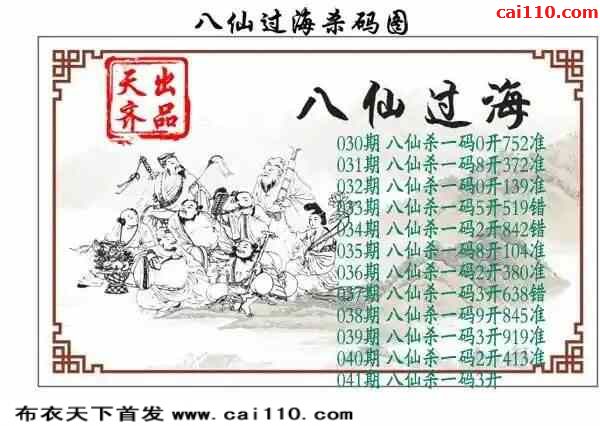 八仙过海杀码图
cai110.com
天齐
出品
八仙过海
030期 八仙杀一码0开752准
031期 八仙杀一码8开372准
032期 八仙杀一码0开139准
033期 八仙杀一码5开519错
034期 八仙杀一码2开842错
035期 八仙杀一码8开104准
036期 八仙杀一码2开380准
037期 八仙杀一码3开638错
038期 八仙杀一码9开845准
039期 八仙杀一码3开919准
040期 八仙杀一码2开413准
041期 八仙杀一码3开
布衣天下首发 www.cai110.com